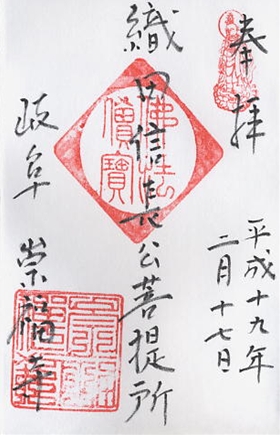 奉拝
平成十九年
二月十七日
織田信長公菩提所
佛法
僧寳
岐阜
崇福寺